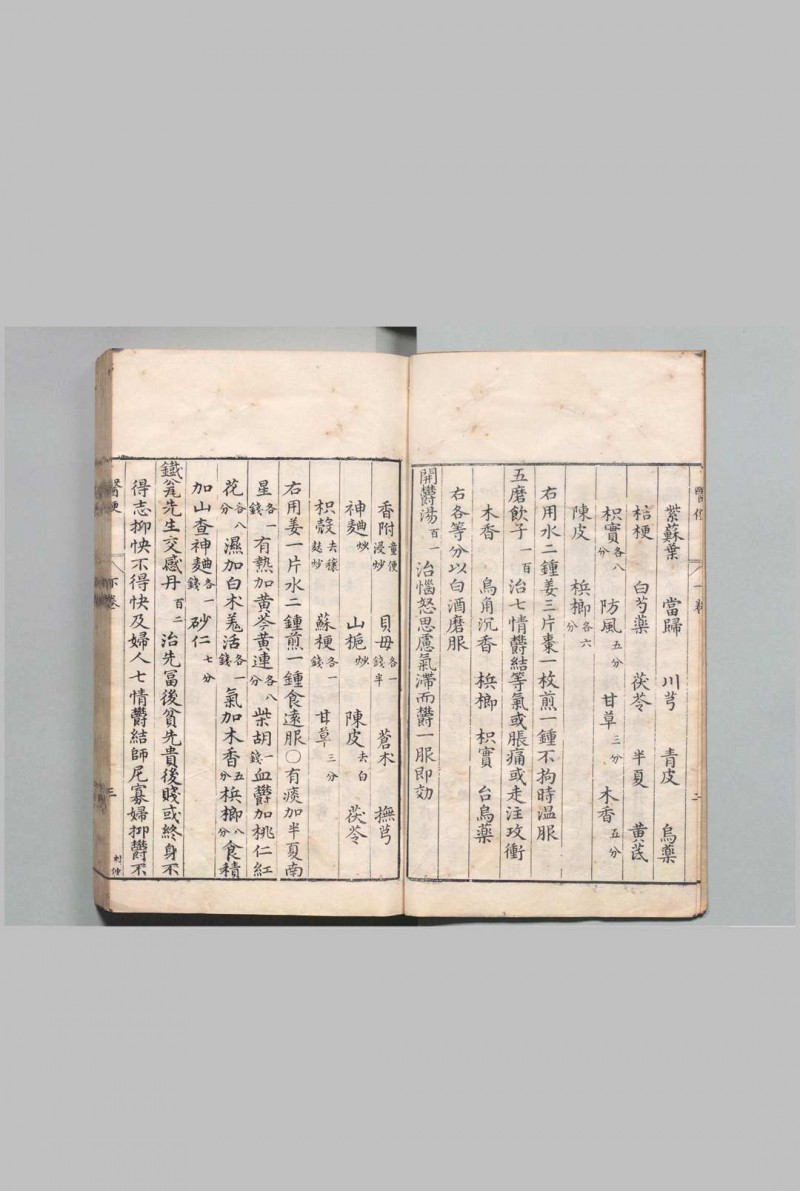 紫蘇葉 當歸 川芎 青皮 烏藥
桔梗 白芍藥 茯苓 半夏 黃芪
枳實各八分 防風五分 甘草三分 木香五分
陳皮 梹榔各六分
右用水二鍾姜三片棗一枚煎一鍾不拘時温服
五磨飲子一百 治七情欝結等氣或脹痛或走注攻衝
木香 烏角沉香 梹榔 枳實 台烏藥
右各等分以白酒磨服
開欝湯百一 治惱怒思慮氣滯而欝一服即効
二
香附童便浸炒 貝母各一錢半 蒼朮 撫芎
神麯炒 山梔炒 陳皮去白 茯苓
枳殼去穰麩炒 蘇梗各一錢 甘草三分
右用姜一片水二鍾煎一鍾食遠服○有痰加半夏南
星各一錢 有熱加黃芩黃連各八分 柴胡一錢 血欝加桃仁紅
花各八分 濕加白朮羗活各一錢 氣加木香五分 梹榔八分 食積
加山查神麯各一錢 砂仁七分
鐵瓮先生交感丹百二 治先冨後貧先貴後賤或終身不
得志抑快不得快及婦人七情欝結師尼寡婦抑欝不
醫便 下卷 三